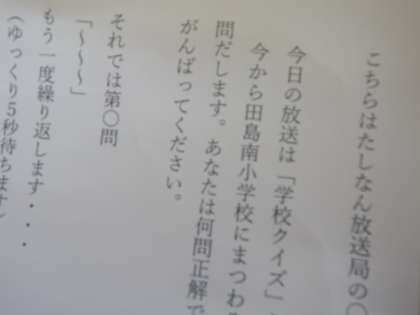 こちらはたしなん放送局の〇
今日の放送は「学校クイズ」
今から田島南小学校にまつわ
問だします。あなたは何問正解で
がんばってください。
それでは第〇問
「～～～」
もう一度繰り返します・・・
（ゆっくり5秒待ちます